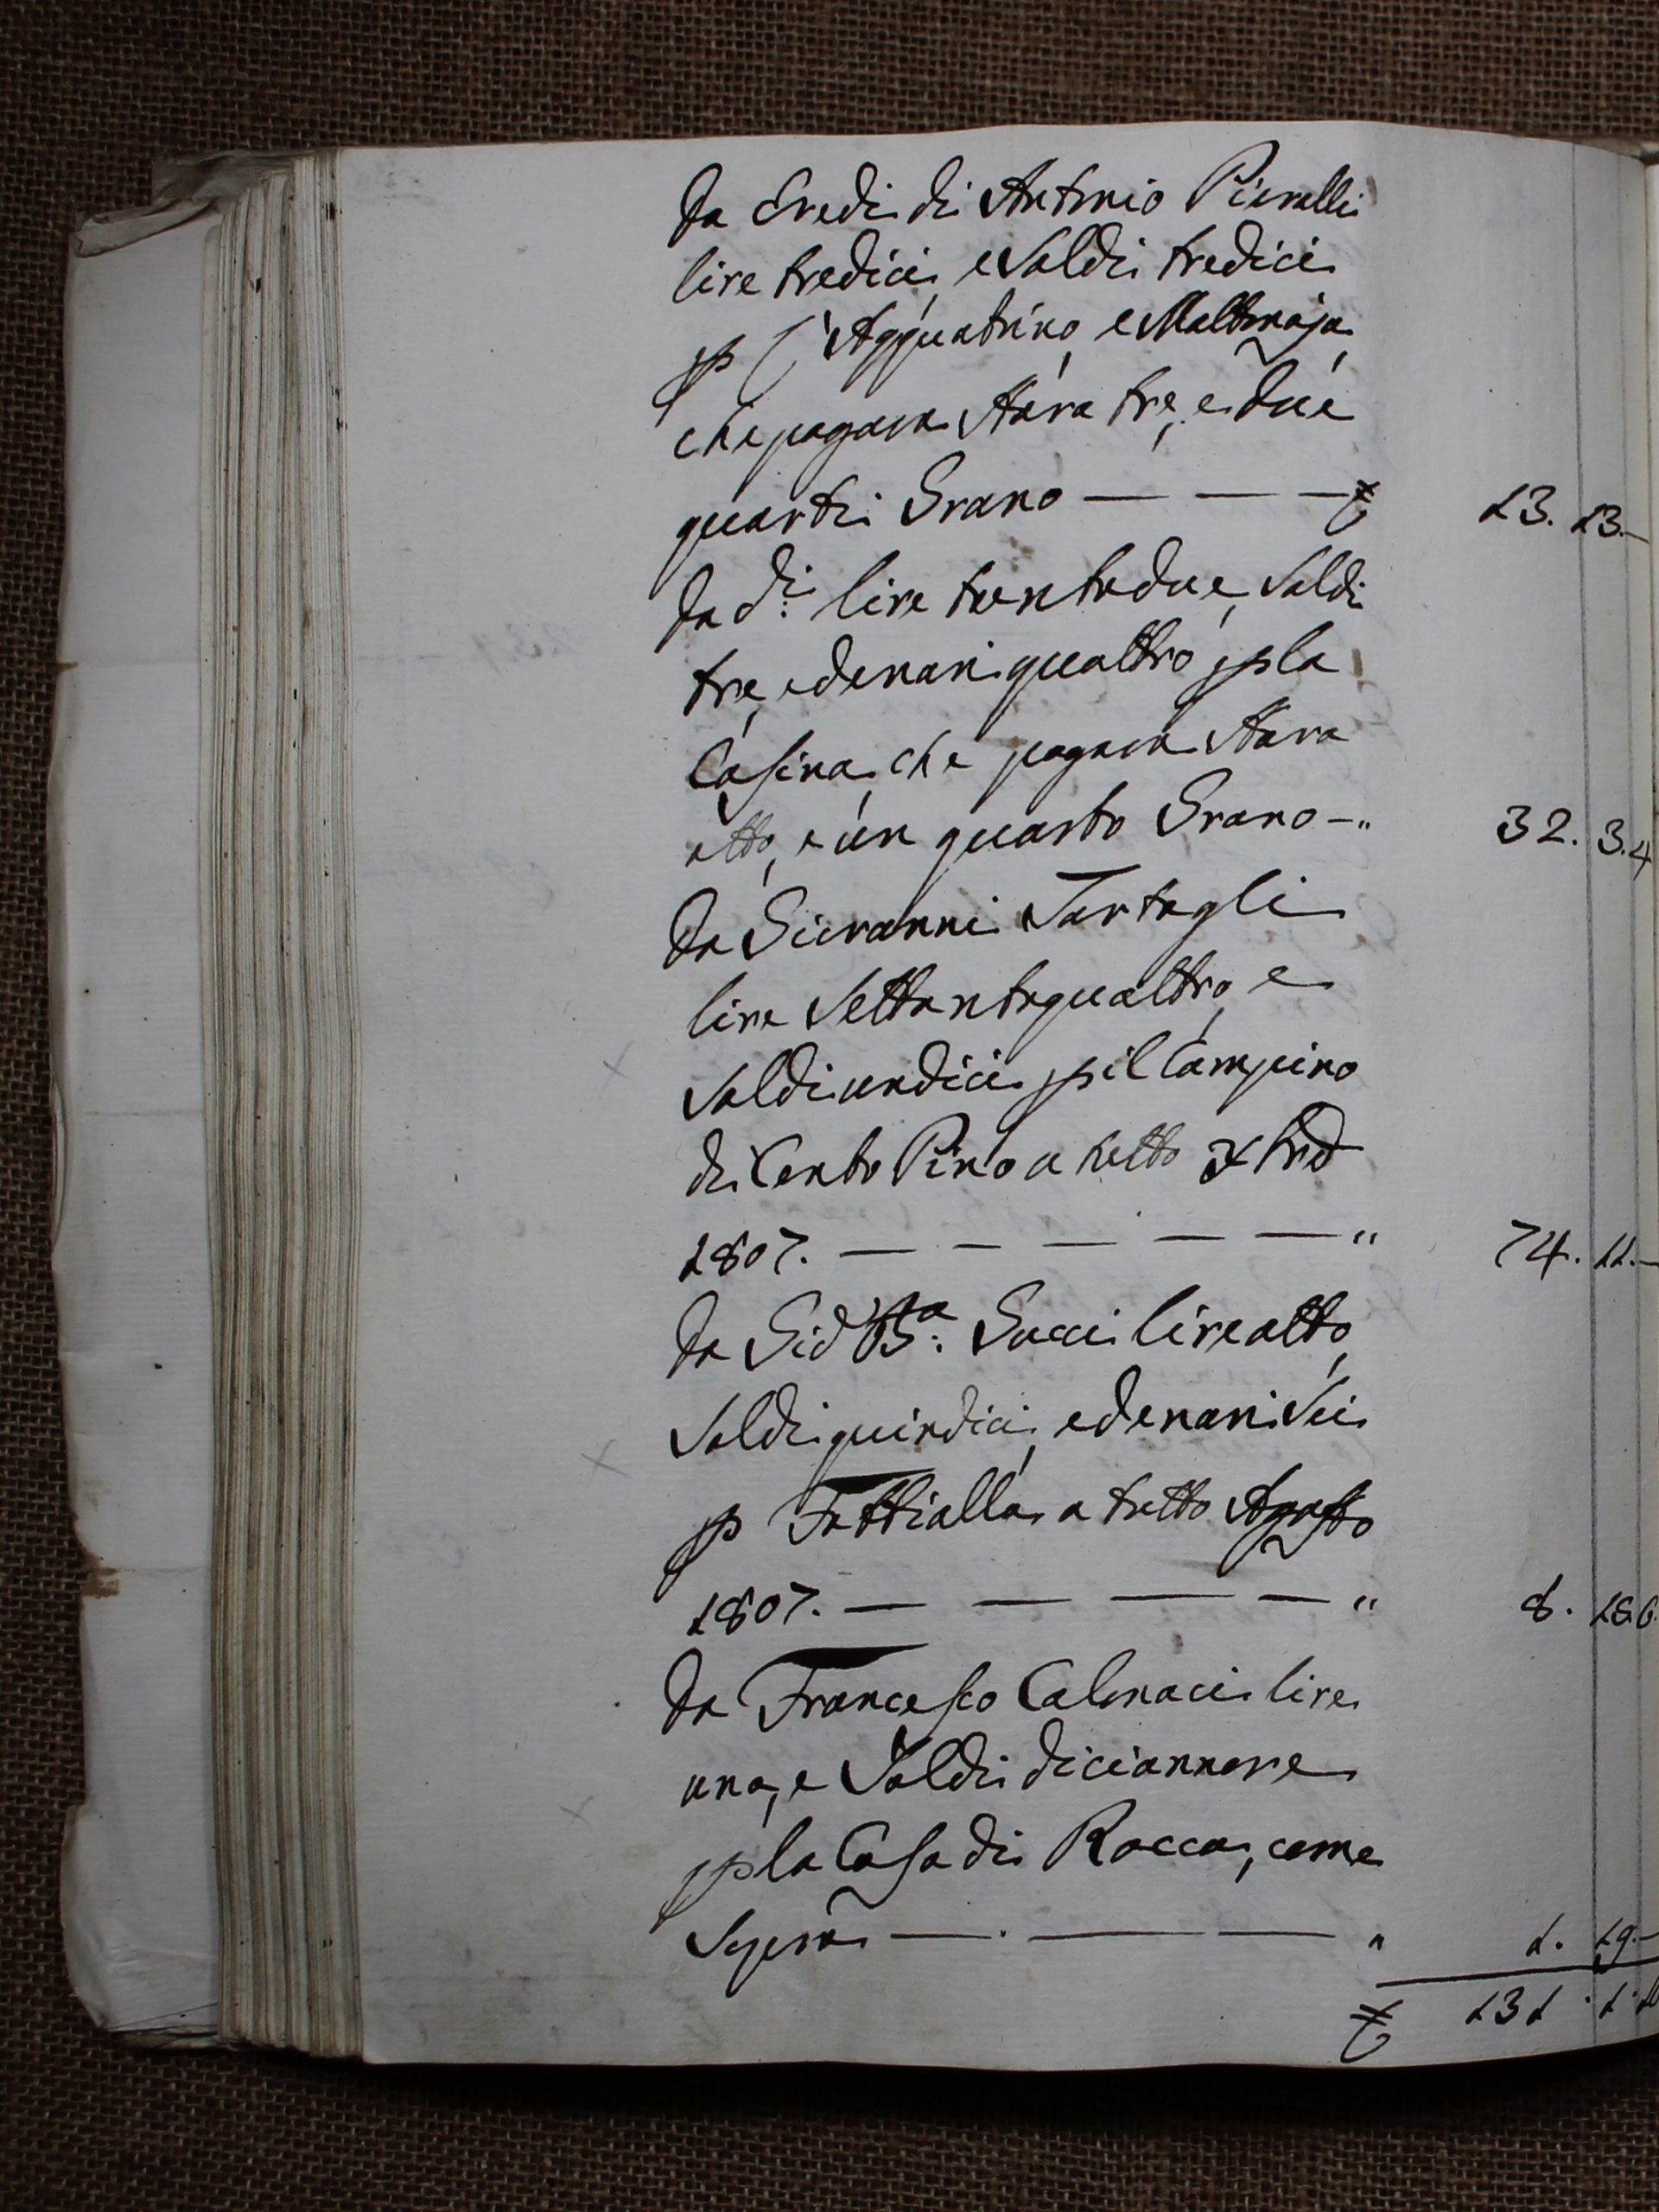 Da Eredi di Antonio Pieralli
lire tredici, e Soldi tredici
p l'Agguatrino, e Mattonaja,
che pagava Stara tre, e due
quarti Grano — — — £ 13. 13.—
Da d.i lire trentadue, Soldi
tre, e denari quattro p la
Casina, che pagava Stara
otto, e un quarto Grano —" 32. 3.4
Da Giovanni Tartagli
lire Settantaquattro, e
Soldi undici p il Campino
di Cento Pino a tutto
1807. — — — — —" 74. 11.—
Da Gio Bta. Succi lire otto,
Soldi quindici, e denari Sei
p Fattialla a tutto Agosto
1807. — — — —" 8. 15.6
Da Francesco Calonaci lire
una, e Soldi diciannove
p la Casa di Rocca, come
Sopra — — —" 1. 19.—
£ 131. 1.